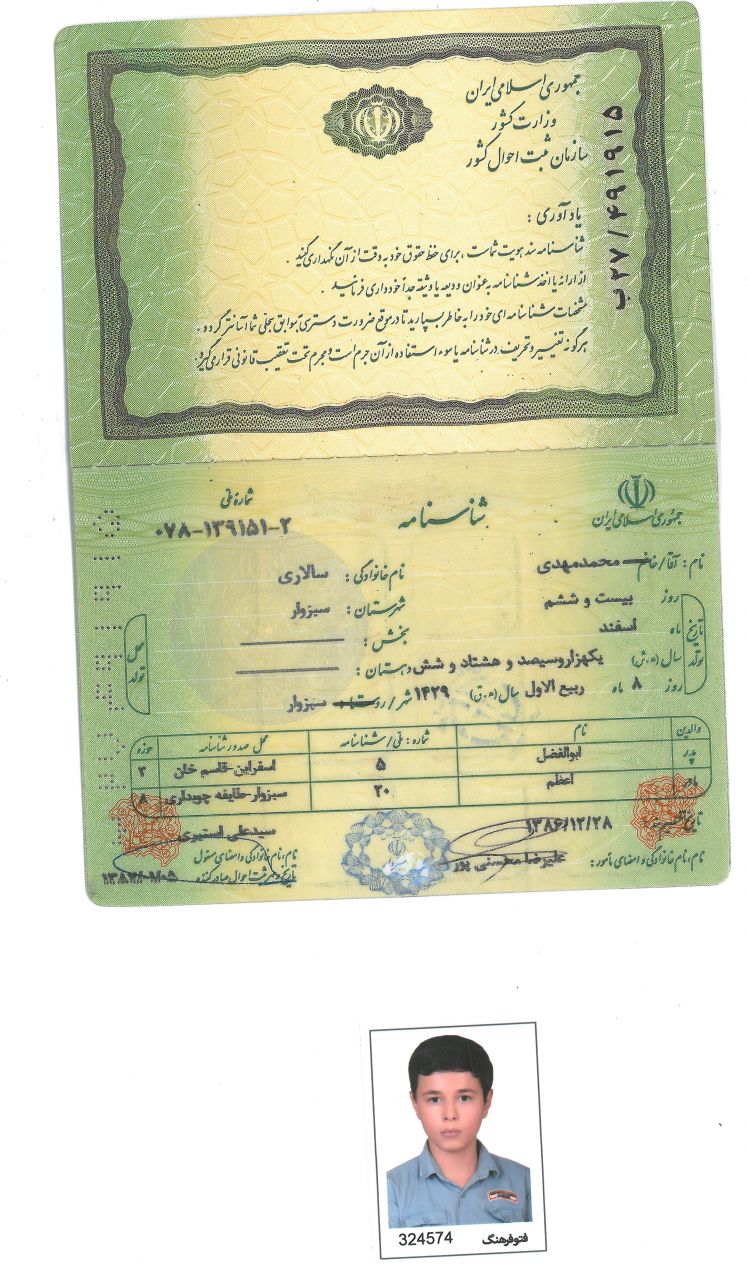 جمهوری اسلامی ایران
وزارت کشور
سازمان ثبت احوال کشور
ب۲۷/۴۹۱۹۱۵
یادآوری :
شناسنامه سند هویت شماست ، برای حفظ حقوق خود به دقت از آن نگهداری کنید .
از ارائه یا اخذ شناسنامه به عنوان ودیعه یا وثیقه جداً خودداری فرمائید .
مشخصات شناسنامه ای خود را به خاطر بسپارید تا در موقع ضرورت دسترسی به سوابق سجلی شما آسانتر گردد .
هرگونه تغییر و تحریف در شناسنامه یا سوء استفاده از آن جرم است و مجرم تحت تعقیب قانونی قرار می گیرد .
جمهوری اسلامی ایران
شناسنامه
شماره ملی
۰۷۸-۱۳۹۱۵۱-۲
نام : آقا/خانم محمدمهدی
نام خانوادگی : سالاری
تاریخ تولد
روز بیست و ششم
ماه اسفند
سال (ه.ش) یکهزاروسیصد و هشتاد و شش
روز ۸ ماه ربیع الاول سال (ه.ق) ۱۴۲۹
محل تولد
شهرستان : سبزوار
بخش :
دهستان :
شهر / روستا سبزوار
والدین نام شماره : ملی / شناسنامه محل صدور شناسنامه حوزه
پدر ابوالفضل ۵ اسفراین-قاسم خان ۳
مادر اعظم ۲۰ سبزوار-طایفه چوبداری ۸
تاریخ تنظیم سند : ۱۳۸۶/۱۲/۲۸
نام ، نام خانوادگی و امضای مامور : علیرضا محسنی پور
سیدعلی استیری
نام ، نام خانوادگی و امضای مسئول
324574 فتوفرهنگ